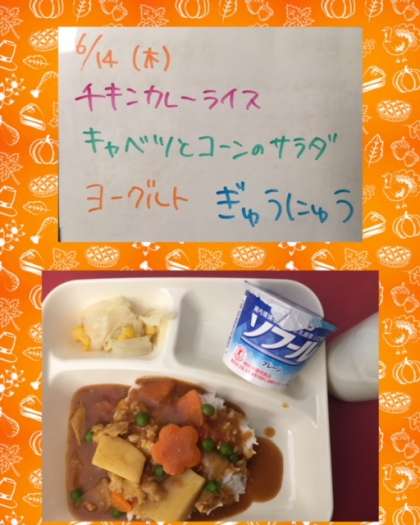 6/14 (木)
チキンカレーライス
キャベツとコーンのサラダ
ヨーグルト ぎゅうにゅう
ソフール
プレーン